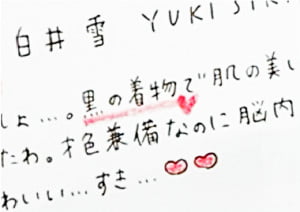 白井 雪 YUKI SIR
しょ…。黒の着物で肌の美し
たわ。才色兼備なのに脳内
わいい…すき…